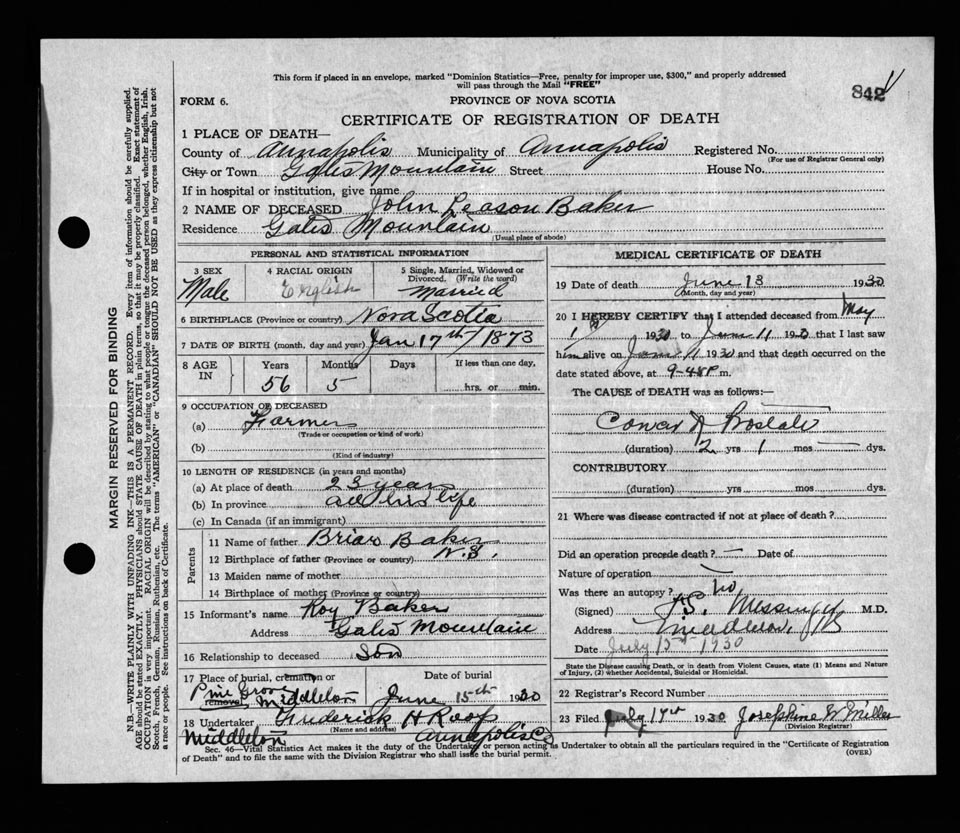 This form if placed in an envelope, marked "Dominion Statistics—Free, penalty for improper use, $300," and properly addressed
will pass through the Mail "FREE"
842
FORM 6.
PROVINCE OF NOVA SCOTIA
CERTIFICATE OF REGISTRATION OF DEATH
1 PLACE OF DEATH—
County of Annapolis Municipality of Annapolis Registered No.
(For use of Registrar General only)
City or Town Gates Mountain Street House No.
If in hospital or institution, give name
2 NAME OF DECEASED John Leason Baker
Residence Gates Mountain
(Usual place of abode)
PERSONAL AND STATISTICAL INFORMATION
3 SEX 4 RACIAL ORIGIN 5 Single, Married, Widowed or
Divorced. (Write the word)
Male English Married
6 BIRTHPLACE (Province or country) Nova Scotia
7 DATE OF BIRTH (month, day and year) Jan 17th / 1873
8 AGE IN Years Months Days If less than one day,
56 5 hrs. or min.
9 OCCUPATION OF DECEASED
(a) Farmer
(Trade or occupation or kind of work)
(b)
(Kind of industry)
10 LENGTH OF RESIDENCE (in years and months)
(a) At place of death 23 years
(b) In province all his life
(c) In Canada (if an immigrant)
Parents
11 Name of father Briar Baker
12 Birthplace of father (Province or country) N.S.
13 Maiden name of mother
14 Birthplace of mother (Province or country)
15 Informant's name Roy Baker
Address Gates Mountain
16 Relationship to deceased Son
17 Place of burial, cremation or removal Date of burial
Pine Grove Middleton June 15th 1930
18 Undertaker Frederick H Roop
(Name and address)
Middleton Annapolis Co
MEDICAL CERTIFICATE OF DEATH
19 Date of death June 13 1930
(Month, day and year)
20 I HEREBY CERTIFY that I attended deceased from May
1 1930 to June 11 1930 that I last saw
him alive on June 11 1930 and that death occurred on the
date stated above, at 9-48 P m.
The CAUSE of DEATH was as follows:
Cancer Prostate
(duration) 2 yrs 1 mos dys.
CONTRIBUTORY
(duration) yrs mos dys.
21 Where was disease contracted if not at place of death?
Did an operation precede death? — Date of
Nature of operation —
Was there an autopsy? No
(Signed) Messinger M.D.
Address Middleton, NS
Date July 15th 1930
State the Disease causing Death, or in death from Violent Causes, state (1) Means and Nature
of Injury, (2) whether Accidental, Suicidal or Homicidal.
22 Registrar's Record Number
23 Filed July 17th 1930 Josephine W Miller
(Division Registrar)
Sec. 46—Vital Statistics Act makes it the duty of the Undertaker or person acting as Undertaker to obtain all the particulars required in the "Certificate of Registration
of Death" and to file the same with the Division Registrar who shall issue the burial permit.
(OVER)
MARGIN RESERVED FOR BINDING
N.B.—WRITE PLAINLY WITH UNFADING INK—THIS IS A PERMANENT RECORD. Every item of information should be carefully supplied.
AGE should be stated EXACTLY. PHYSICIANS should STATE CAUSE OF DEATH in plain terms, so that it may be properly classified. Exact statement of
OCCUPATION is very important. RACIAL ORIGIN will be described by stating to what people or tongue the deceased person belonged, whether English, Irish,
Scotch, French, German, Russian, Ruthenian, etc. The terms "AMERICAN" or "CANADIAN" SHOULD NOT BE USED as they express citizenship but not
a race or people. See instructions on back of Certificate.